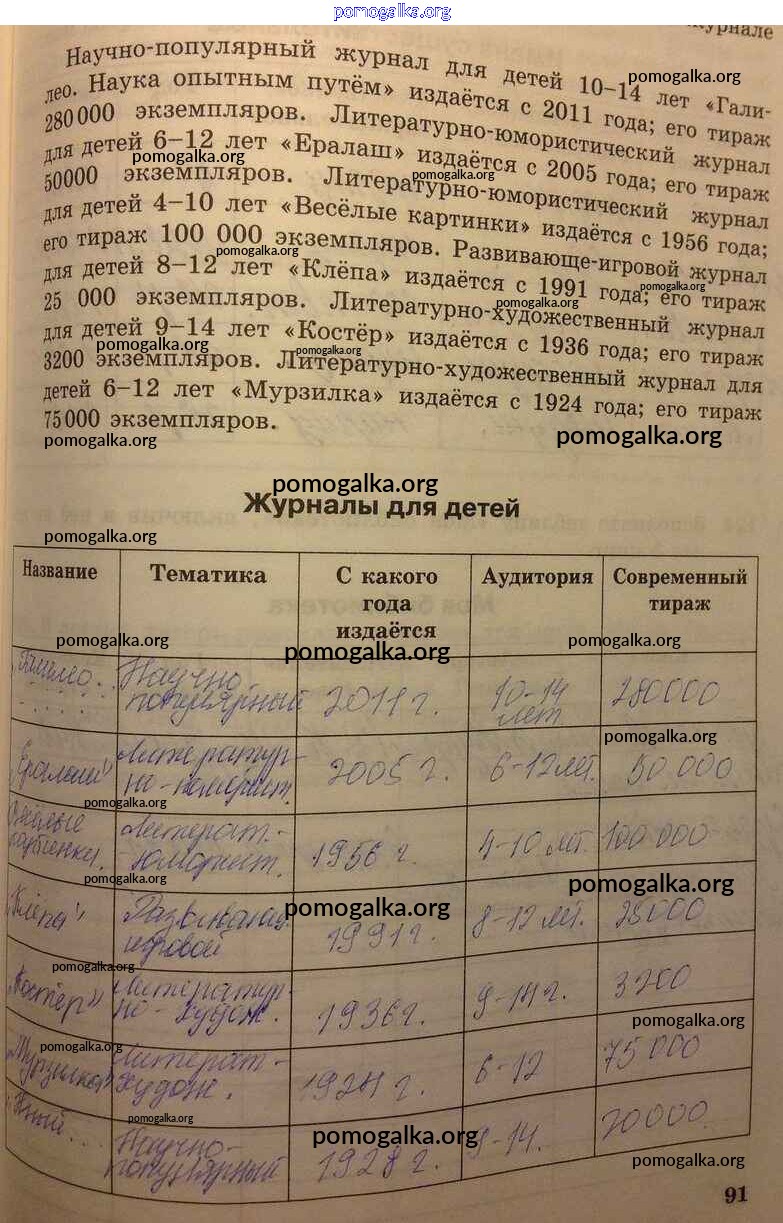 pomogalka.org
журнале
Научно-популярный журнал для детей 10–14 лет «Гали-
лео. Наука опытным путём» издаётся с 2011 года; его тираж
280000 экземпляров. Литературно-юмористический журнал
для детей 6–12 лет «Ералаш» издаётся с 2005 года; его тираж
50000 экземпляров. Литературно-юмористический журнал
для детей 4–10 лет «Весёлые картинки» издаётся с 1956 года;
его тираж 100 000 экземпляров. Развивающе-игровой журнал
для детей 8–12 лет «Клёпа» издаётся с 1991 года; его тираж
25 000 экземпляров. Литературно-художественный журнал
для детей 9–14 лет «Костёр» издаётся с 1936 года; его тираж
3200 экземпляров. Литературно-художественный журнал для
детей 6–12 лет «Мурзилка» издаётся с 1924 года; его тираж
75000 экземпляров.
Журналы для детей
Название Тематика С какого года издаётся Аудитория Современный тираж
Научно-популярный 2011 г. 10-14 лет 280000
"Ералаш" Литератур-но-юморист. 2005 г. 6-12 лет. 50 000
Литерат.-юморист. 1956 г. 4-10 лет. 100 000
"Клёпа" игровой 1991 г. 8-12 лет. 25000
"Костёр" Литератур-но-худож. 1936 г. 9-14 г. 3200
"Мурзилка" Литерат-худож. 1924 г. 6-12 75 000
"Юный... Научно-популярный 1928 г. 9-14. 20000.
91